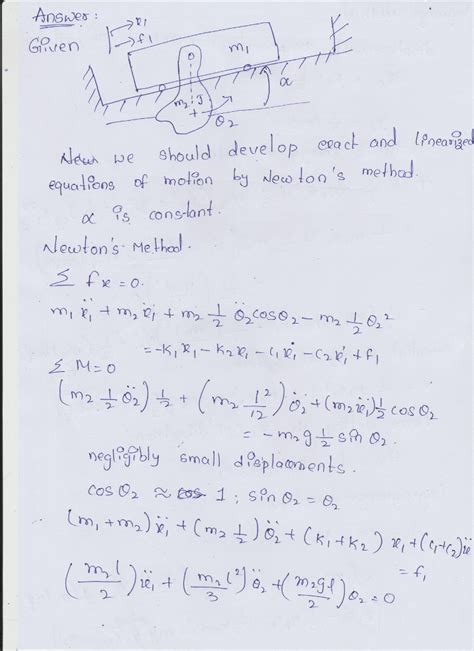 Answer:
Given
x1
f1
m1
m2 J
θ2
α
Now we should develop exact and linearized
equations of motion by Newton's method.
α is constant.
Newton's Method.
Σ fx = 0.
m1 ẍ1 + m2 ẍ1 + m2 1/2 θ̈2 cosθ2 - m2 1/2 θ2²
= -K1x1 - K2x1 - c1ẋ1 - c2ẋ1 + f1
Σ M = 0
(m2 1/2 θ̈2) 1/2 + (m2 l²/12) θ̈2 + (m2ẍ1) 1/2 cosθ2
= -m2g 1/2 sinθ2.
negligibly small displacments.
cosθ2 ≈ 1 ; sinθ2 = θ2
(m1+m2) ẍ1 + (m2 1/2) θ̈2 + (K1+K2) x1 + (c1+c2)ẍ
= f1
(m2l/2) ẍ1 + (m2l²/3) θ̈2 + (m2gl/2) θ2 = 0